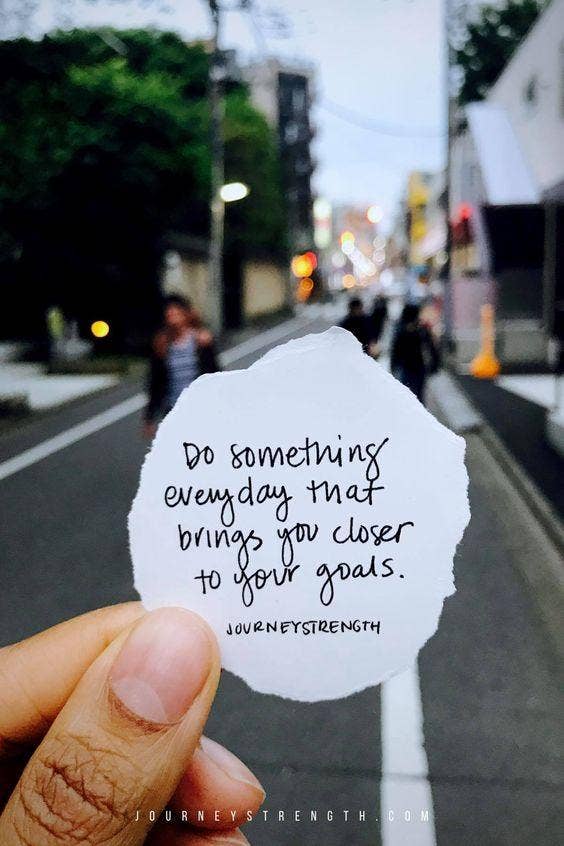 Do something
everyday that
brings you closer
to your goals.
JOURNEYSTRENGTH
JOURNEYSTRENGTH.COM